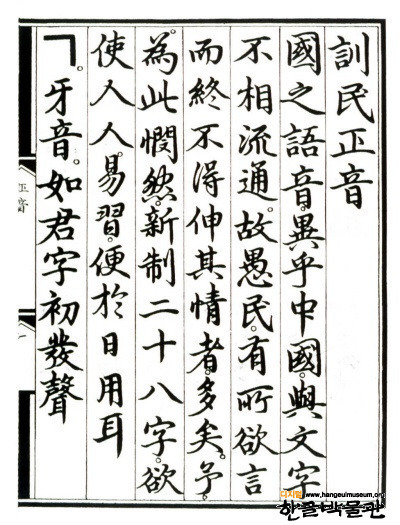 訓民正音
國之語音。異乎中國。與文字
不相流通。故愚民。有所欲言
而終不得伸其情者。多矣。予。
為此憫然。新制二十八字。欲
使人人。易習。便於日用耳
ㄱ。牙音。如君字初發聲
正音
一
디지털 www.hangeulmuseum.org
한글박물관